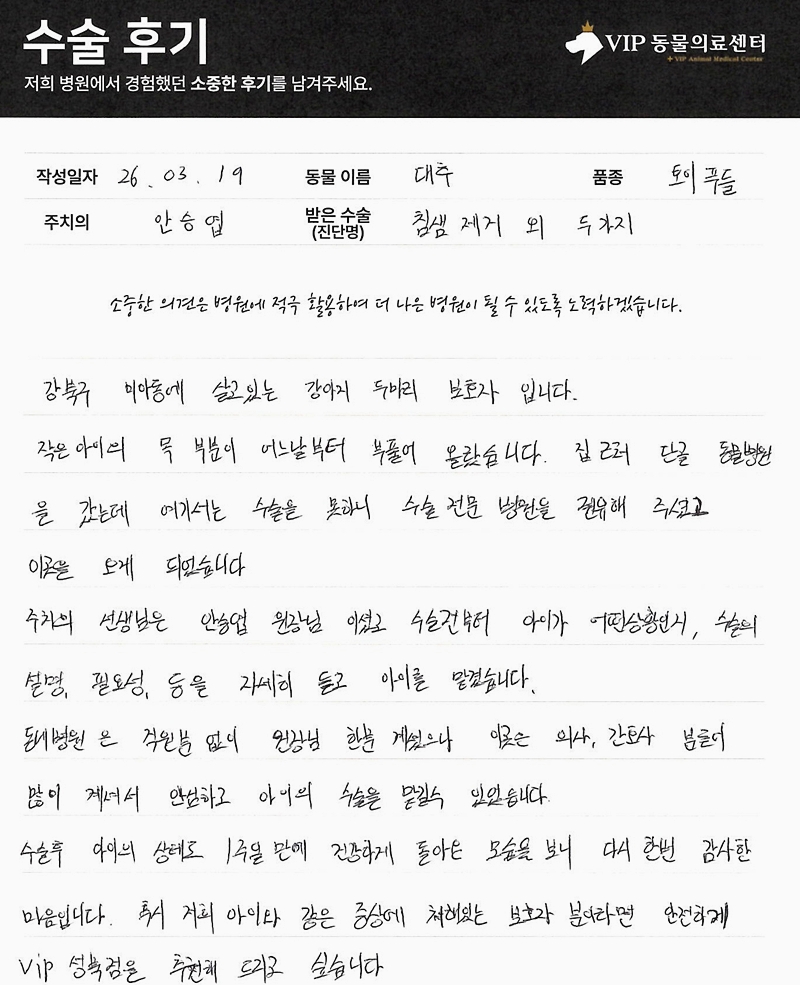 수술 후기
저희 병원에서 경험했던 소중한 후기를 남겨주세요.
VIP 동물의료센터
+ VIP Animal Medical Center
작성일자 26. 03. 19 동물 이름 대추 품종 토이 푸들
주치의 안승엽 받은 수술 (진단명) 침샘 제거 외 두가지
소중한 의견은 병원에 적극 활용하여 더 나은 병원이 될 수 있도록 노력하겠습니다.
강북구 미아동에 살고있는 강아지 두마리 보호자 입니다.
작은 아이의 목 부분이 어느날부터 부풀어 올랐습니다. 집 근처 단골 동물병원
을 갔는데 여기서는 수술을 못하니 수술 전문 병원을 권유해 주셨고
이곳을 오게 되었습니다
주치의 선생님은 안승엽 원장님 이셨고 수술전부터 아이가 어떤상황인지, 수술의
설명, 필요성, 등을 자세히 듣고 아이를 맡겼습니다.
동네병원은 직원분 없이 원장님 한분 계셨으나 이곳은 의사, 간호사 분들이
많이 계셔서 안심하고 아이의 수술을 맡길수 있었습니다.
수술후 아이의 상태도 1주일 만에 건강하게 돌아온 모습을 보니 다시 한번 감사한
마음입니다. 혹시 저희 아이와 같은 증상에 처해있는 보호자 분이라면 안전하게
Vip 성북점을 추천해 드리고 싶습니다